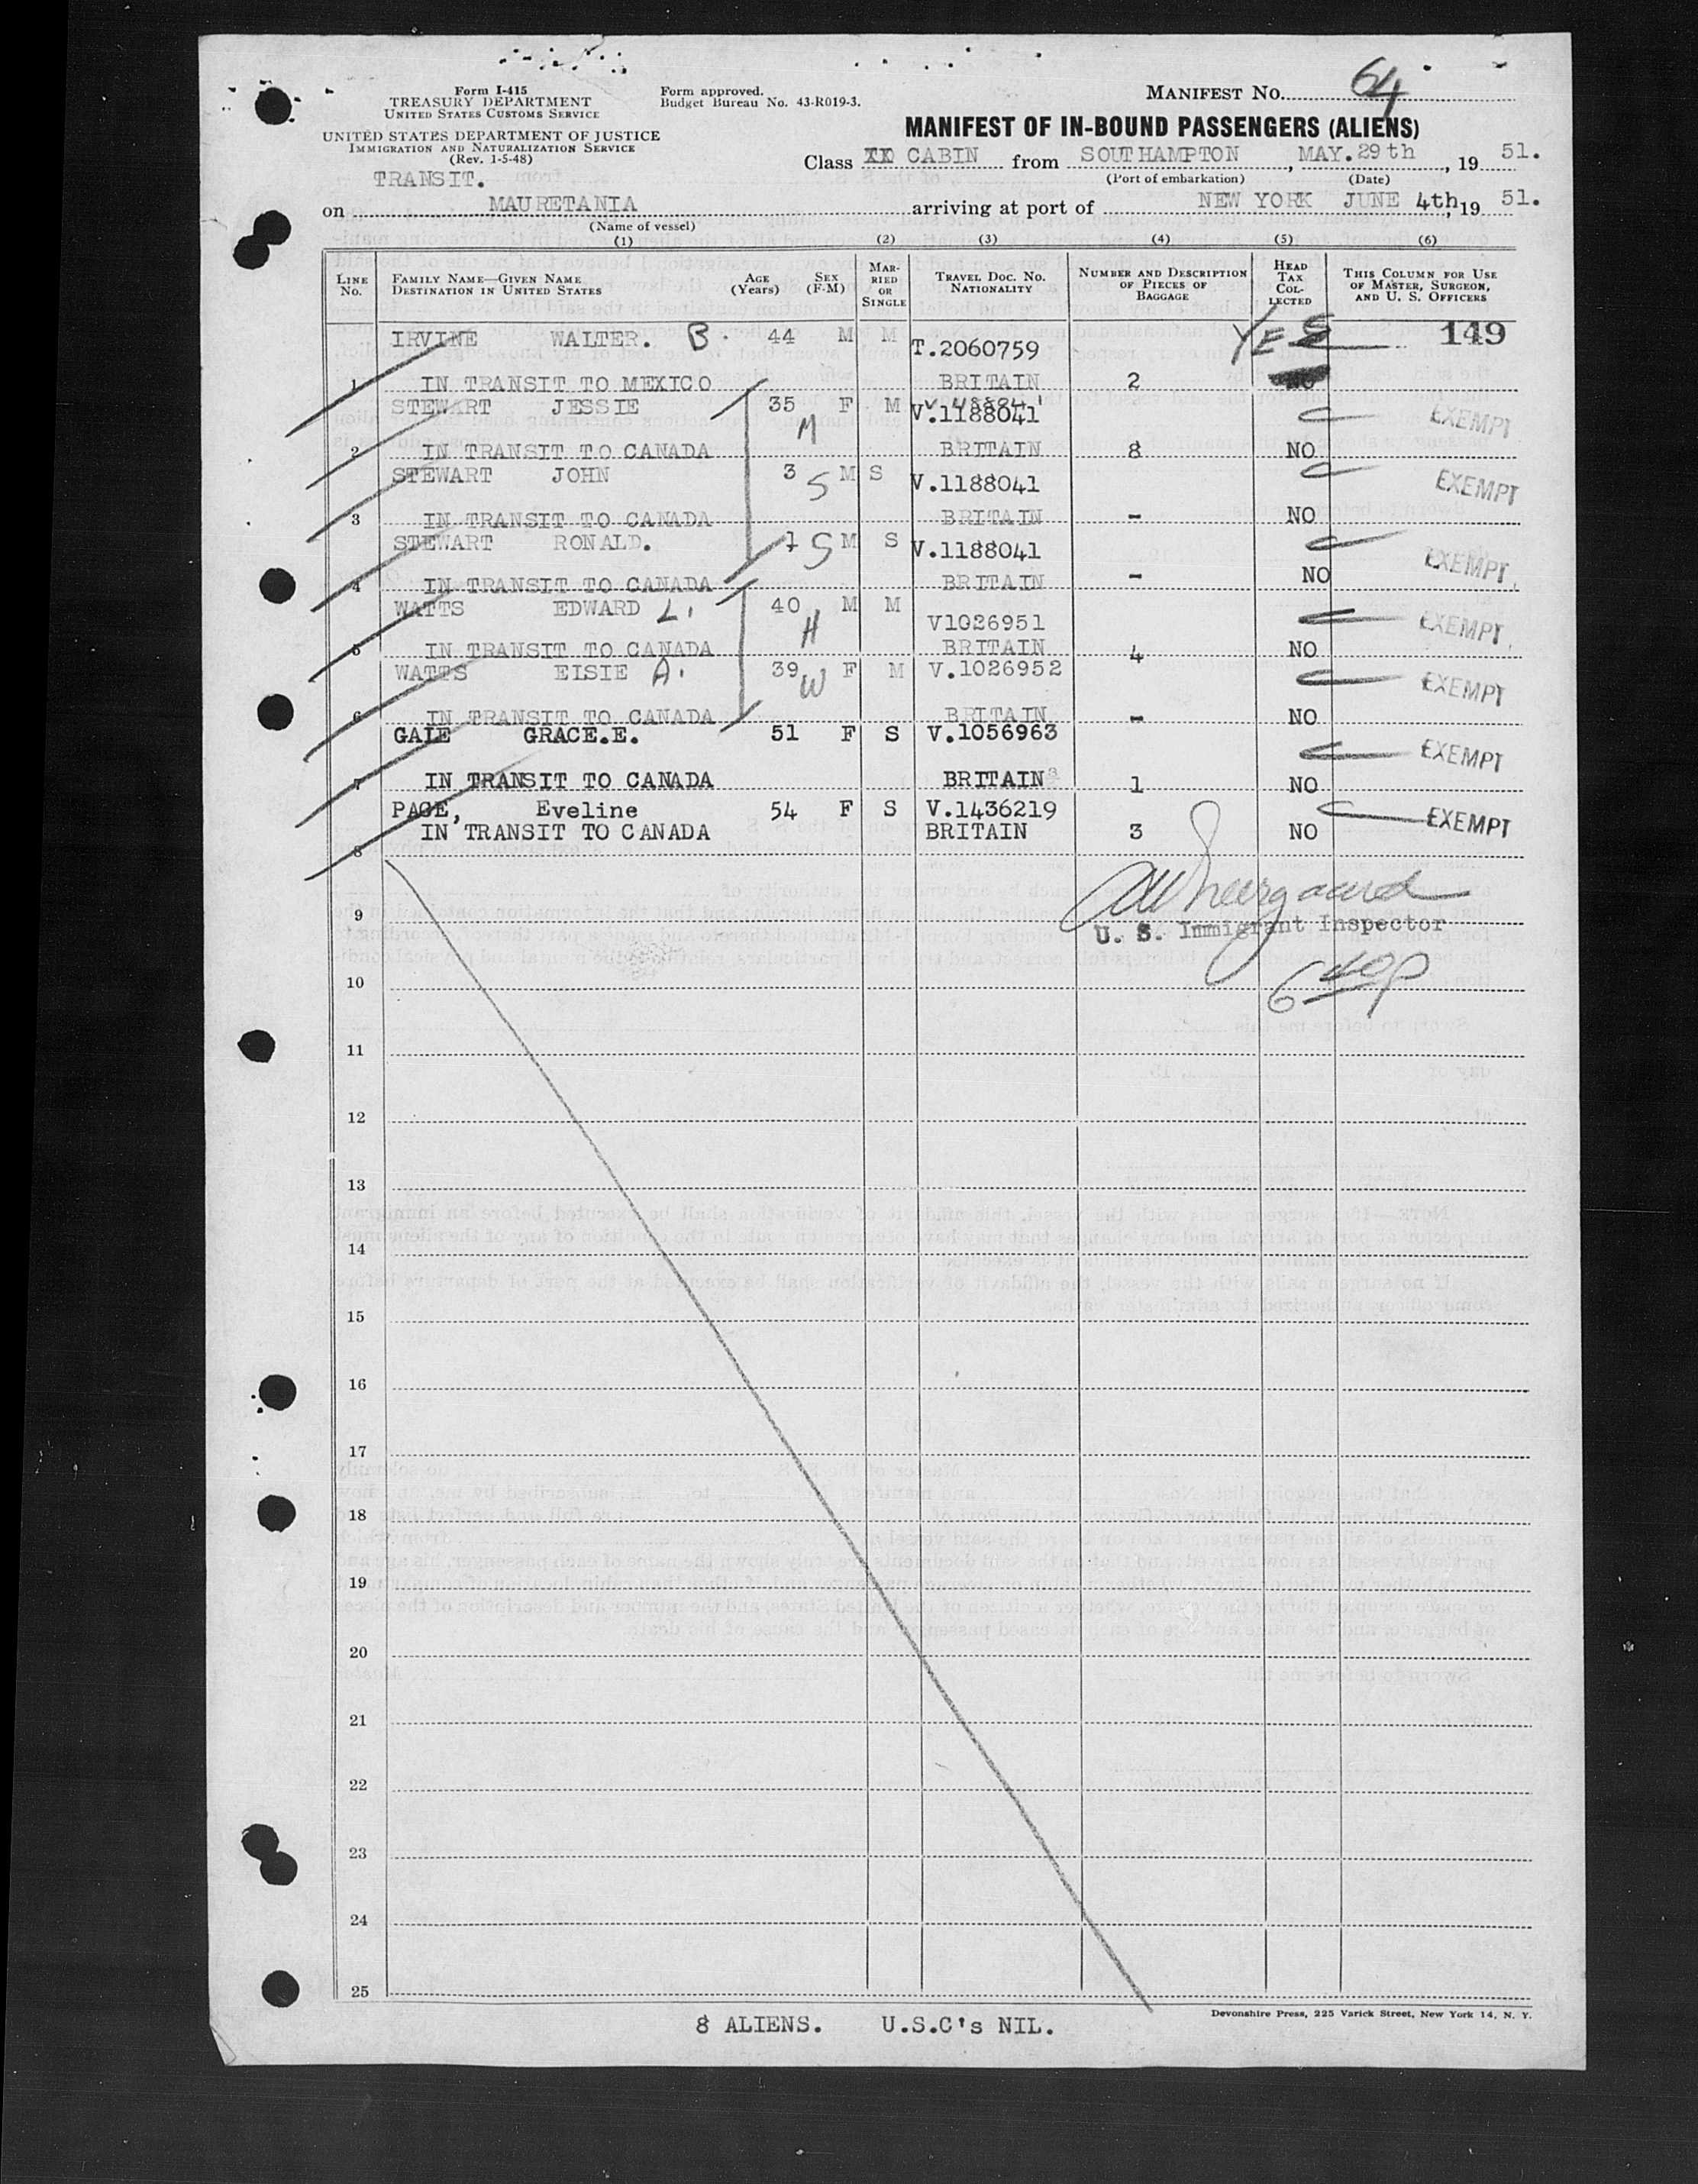 Form I-415
TREASURY DEPARTMENT
UNITED STATES CUSTOMS SERVICE
UNITED STATES DEPARTMENT OF JUSTICE
IMMIGRATION AND NATURALIZATION SERVICE
(Rev. 1-5-48)
Form approved.
Budget Bureau No. 43-R019-3.
MANIFEST NO. 64
MANIFEST OF IN-BOUND PASSENGERS (ALIENS)
Class CABIN from SOUTHAMPTON, MAY.29th, 19 51.
(Port of embarkation) (Date)
TRANSIT.
on MAURETANIA arriving at port of NEW YORK JUNE 4th, 19 51.
(Name of vessel)
(1) (2) (3) (4) (5) (6)
LINE NO. FAMILY NAME—GIVEN NAME DESTINATION IN UNITED STATES AGE (Years) SEX (F-M) MARRIED OR SINGLE TRAVEL DOC. NO. NATIONALITY NUMBER AND DESCRIPTION OF PIECES OF BAGGAGE HEAD TAX COLLECTED THIS COLUMN FOR USE OF MASTER, SURGEON, AND U. S. OFFICERS
IRVINE WALTER. B. 44 M M T.2060759 YES 149
1 IN TRANSIT TO MEXICO BRITAIN 2 NO
STEWART JESSIE 35 M F M V.1188041 EXEMPT
2 IN TRANSIT TO CANADA BRITAIN 8 NO
STEWART JOHN 3 S M S V.1188041 EXEMPT
3 IN TRANSIT TO CANADA BRITAIN - NO
STEWART RONALD. 1 S M S V.1188041 EXEMPT
4 IN TRANSIT TO CANADA BRITAIN - NO
WATTS EDWARD L. 40 H M M V1026951 EXEMPT
5 IN TRANSIT TO CANADA BRITAIN 4 NO
WATTS ELSIE A. 39 W F M V.1026952 EXEMPT
6 IN TRANSIT TO CANADA BRITAIN - NO
GALE GRACE.E. 51 F S V.1056963 EXEMPT
7 IN TRANSIT TO CANADA BRITAIN 1 NO
PAGE, Eveline 54 F S V.1436219 EXEMPT
8 IN TRANSIT TO CANADA BRITAIN 3 NO
9
U. S. Immigrant Inspector
6 40p
10
11
12
13
14
15
16
17
18
19
20
21
22
23
24
25
Devonshire Press, 225 Varick Street, New York 14, N. Y.
8 ALIENS. U.S.C's NIL.